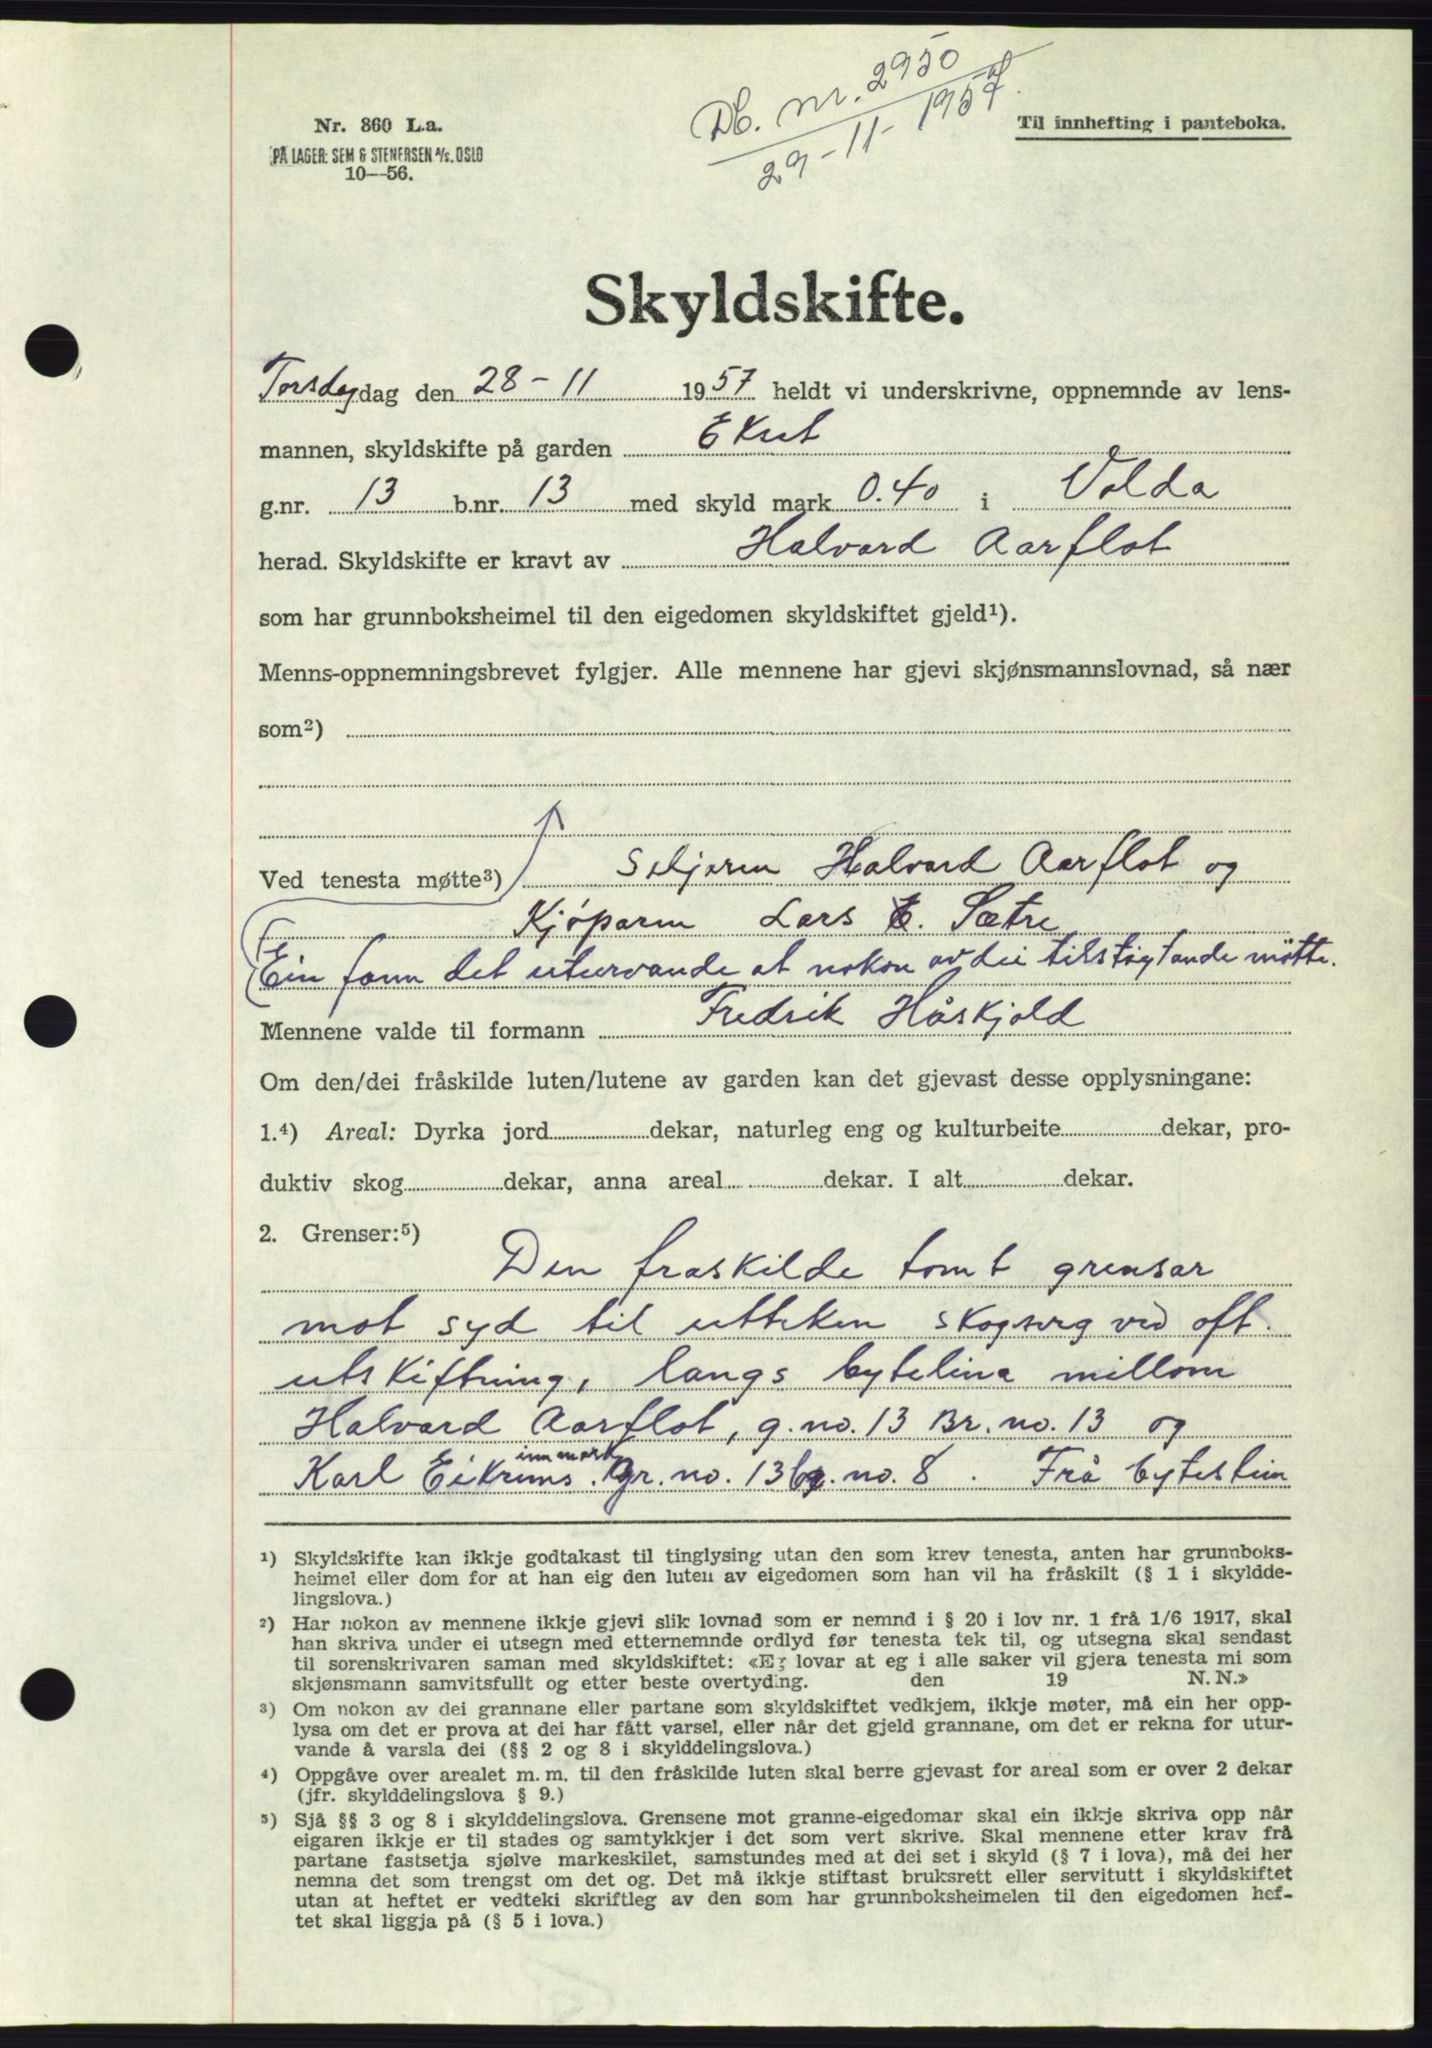 Db. nr. 2950
29-11-1957
Nr. 360 L.a.
PÅ LAGER: SEM & STENERSEN A/S. OSLO
10—56.
Til innhefting i panteboka.
Skyldskifte.
Torsdag dag den 28-11 1957 heldt vi underskrivne, oppnemnde av lens-
mannen, skyldskifte på garden
g.nr. 13 b.nr. 13 med skyld mark 0.40 i Volda
herad. Skyldskifte er kravt av Halvard Aarflot
som har grunnboksheimel til den eigedomen skyldskiftet gjeld¹).
Menns-oppnemningsbrevet fylgjer. Alle mennene har gjevi skjønsmannslovnad, så nær
som²)
Ved tenesta møtte³) Seljaren Halvard Aarflot og
Kjøparen Lars E. Sætre
Ein fann det uturvande at nokon av dei tilstøytande møtte.
Mennene valde til formann Fredrik Håskjold
Om den/dei fråskilde luten/lutene av garden kan det gjevast desse opplysningane:
1.⁴) Areal: Dyrka jord dekar, naturleg eng og kulturbeite dekar, pro-
duktiv skog dekar, anna areal dekar. I alt dekar.
2. Grenser:⁵)
Den fraskilde tomt grensar
mot syd til utteken skogveg ved oft.
utskiftning, langs bytelina millom
Halvard Aarflot, g.no. 13 Br.no. 13 og
Karl Eikrems innmark gr.no. 13 b.no. 8. Frå bytestein
¹) Skyldskifte kan ikkje godtakast til tinglysing utan den som krev tenesta, anten har grunnboks-
heimel eller dom for at han eig den luten av eigedomen som han vil ha fråskilt (§ 1 i skyldde-
lingslova.)
²) Har nokon av mennene ikkje gjevi slik lovnad som er nemnd i § 20 i lov nr. 1 frå 1/6 1917, skal
han skriva under ei utsegn med etternemnde ordlyd før tenesta tek til, og utsegna skal sendast
til sorenskrivaren saman med skyldskiftet: «Eg lovar at eg i alle saker vil gjera tenesta mi som
skjønsmann samvitsfullt og etter beste overtyding. den 19 N. N.»
³) Om nokon av dei grannane eller partane som skyldskiftet vedkjem, ikkje møter, må ein her opp-
lysa om det er prova at dei har fått varsel, eller når det gjeld grannane, om det er rekna for utur-
vande å varsla dei (§§ 2 og 8 i skylddelingslova.)
⁴) Oppgåve over arealet m. m. til den fråskilde luten skal berre gjevast for areal som er over 2 dekar
(jfr. skylddelingslova § 9.)
⁵) Sjå §§ 3 og 8 i skylddelingslova. Grensene mot granne-eigedomar skal ein ikkje skriva opp når
eigaren ikkje er til stades og samtykkjer i det som vert skrive. Skal mennene etter krav frå
partane fastsetja sjølve markeskilet, samstundes med at dei set i skyld (§ 7 i lova), må dei her
nemna det som trengst om det og. Det må ikkje stiftast bruksrett eller servitutt i skyldskiftet
utan at heftet er vedteki skriftleg av den som har grunnboksheimelen til den eigedomen hef-
tet skal liggja på (§ 5 i lova.)